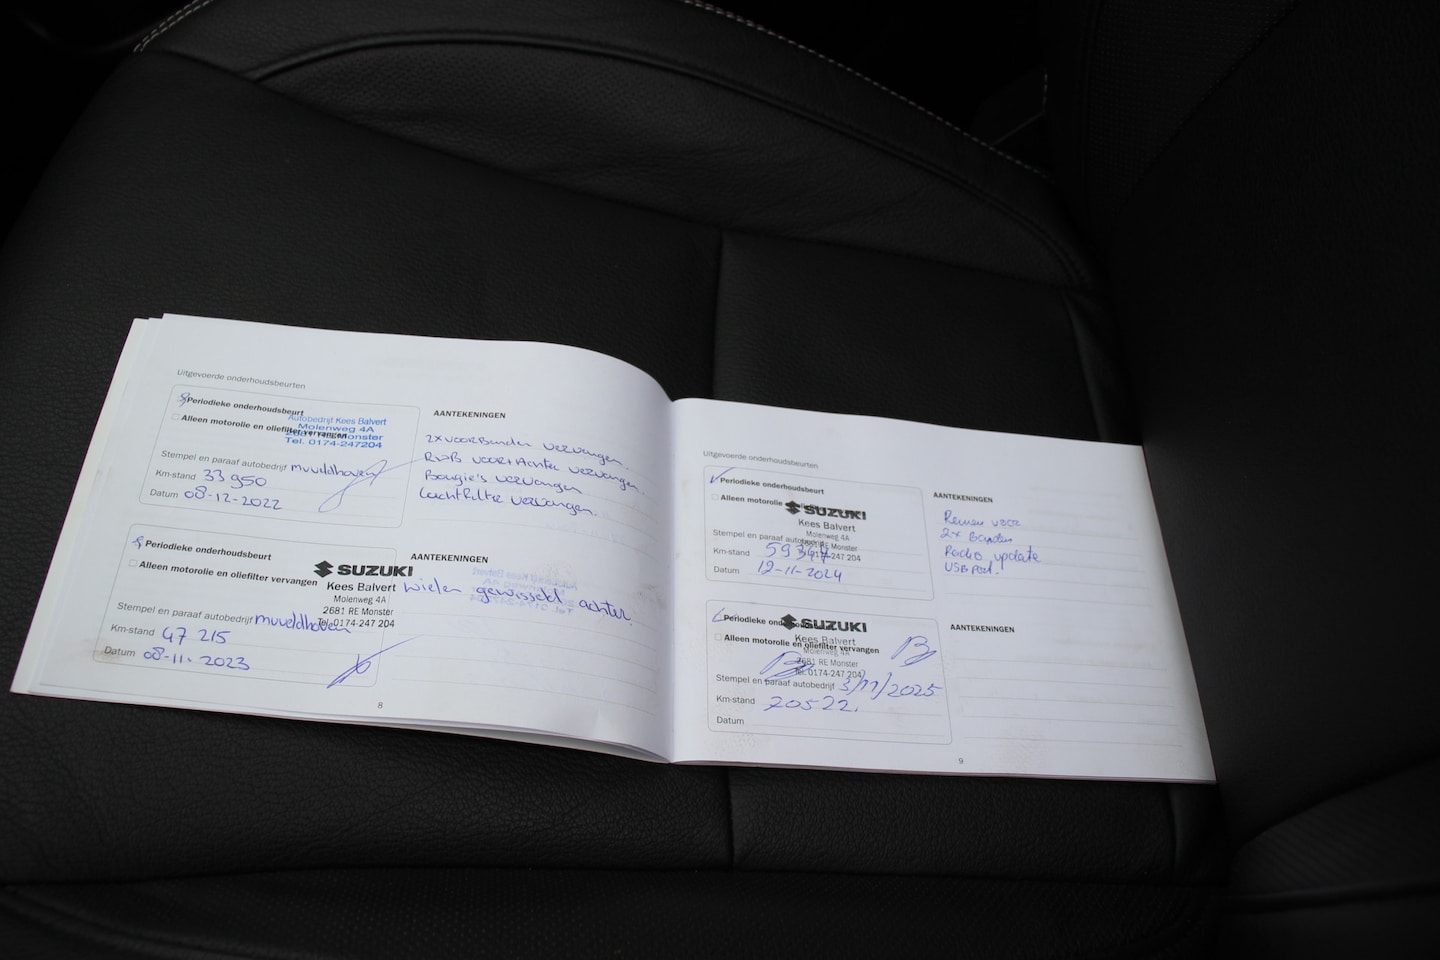 Uitgevoerde onderhoudsbeurten
Periodieke onderhoudsbeurt
Alleen motorolie en oliefilter vervangen
Autobedrijf Kees Balvert
Molenweg 4A
Monster
Tel. 0174-247204
Stempel en paraaf autobedrijf muveldhoven
Km-stand 33950
Datum 08-12-2022
AANTEKENINGEN
2x voorbanden vervangen.
voor+Achter vervangen.
Bougie's vervangen
Luchtfilter vervangen.
Periodieke onderhoudsbeurt
Alleen motorolie en oliefilter vervangen
SUZUKI
Kees Balvert
Molenweg 4A
2681 RE Monster
Tel. 0174-247 204
Stempel en paraaf autobedrijf muveldhoven
Km-stand 47 215
Datum 08-11-2023
AANTEKENINGEN
wielen gewisseld achter.
8
Uitgevoerde onderhoudsbeurten
Periodieke onderhoudsbeurt
Alleen motorolie en
SUZUKI
Kees Balvert
Molenweg 4A
RE Monster
0174-247 204
Stempel en paraaf
Km-stand 59347
Datum 12-11-2024
AANTEKENINGEN
Remmen voor
2x Banden
Radio update
USB Port.
Periodieke
Alleen motorolie en oliefilter vervangen
SUZUKI
Kees Balvert
Molenweg 4A
2681 RE Monster
Tel. 0174-247 204
Stempel en paraaf autobedrijf 3/11/2025
Km-stand 70522.
Datum
AANTEKENINGEN
9